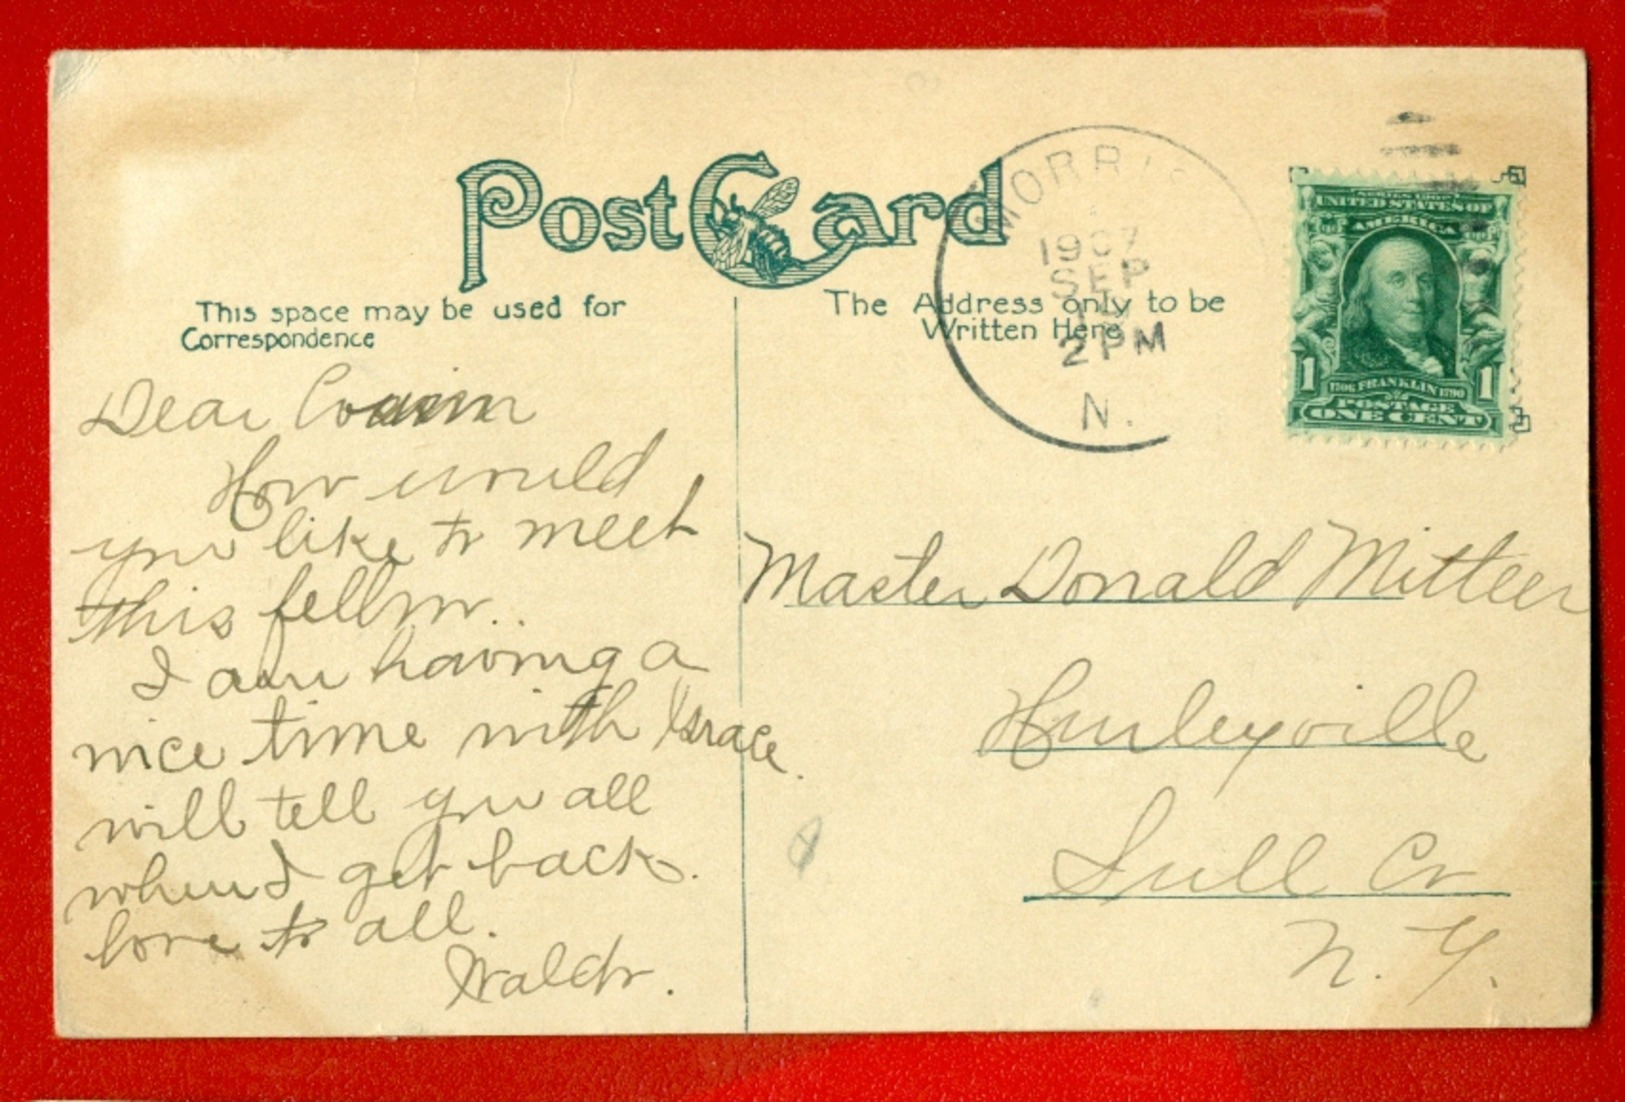 Post Card
This space may be used for
Correspondence
The Address only to be
Written Here
MORRIS
1907
SEP
2 PM
N.
SERIES 1902
UNITED STATES OF
AMERICA
1706 FRANKLIN 1790
1 1
POSTAGE
ONE CENT
Dear Cousin
How would
you like to meet
this fellow.
I am having a
nice time with Grace.
will tell you all
when I get back.
love to all.
Waldo.
Master Donald Mitteer
Hurleyville
Sull Co
N. Y.